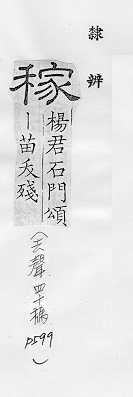 隸辨
稼
楊君石門頌
｜苗夭殘
（去聲 四十禡 p599）